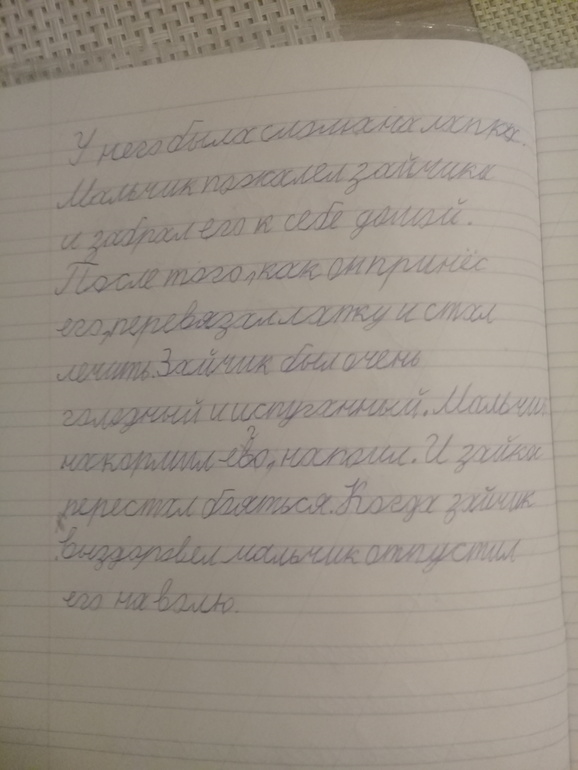 У него была сломана лапка.
Мальчик пожалел зайчика
и забрал его к себе домой.
После того, как он принёс
его, перевязал лапку и стал
лечить. Зайчик был очень
голодный и испуганный. Мальчик
накормил его, напоил. И зайка
перестал бояться. Когда зайчик
выздоровел мальчик отпустил
его на волю.